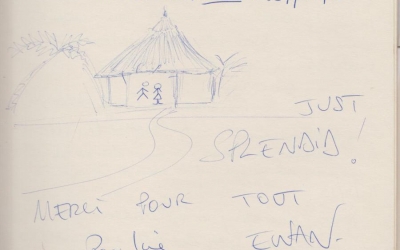 JUST
SPLENDID!
MERCI POUR TOUT
Pauline EWAN.